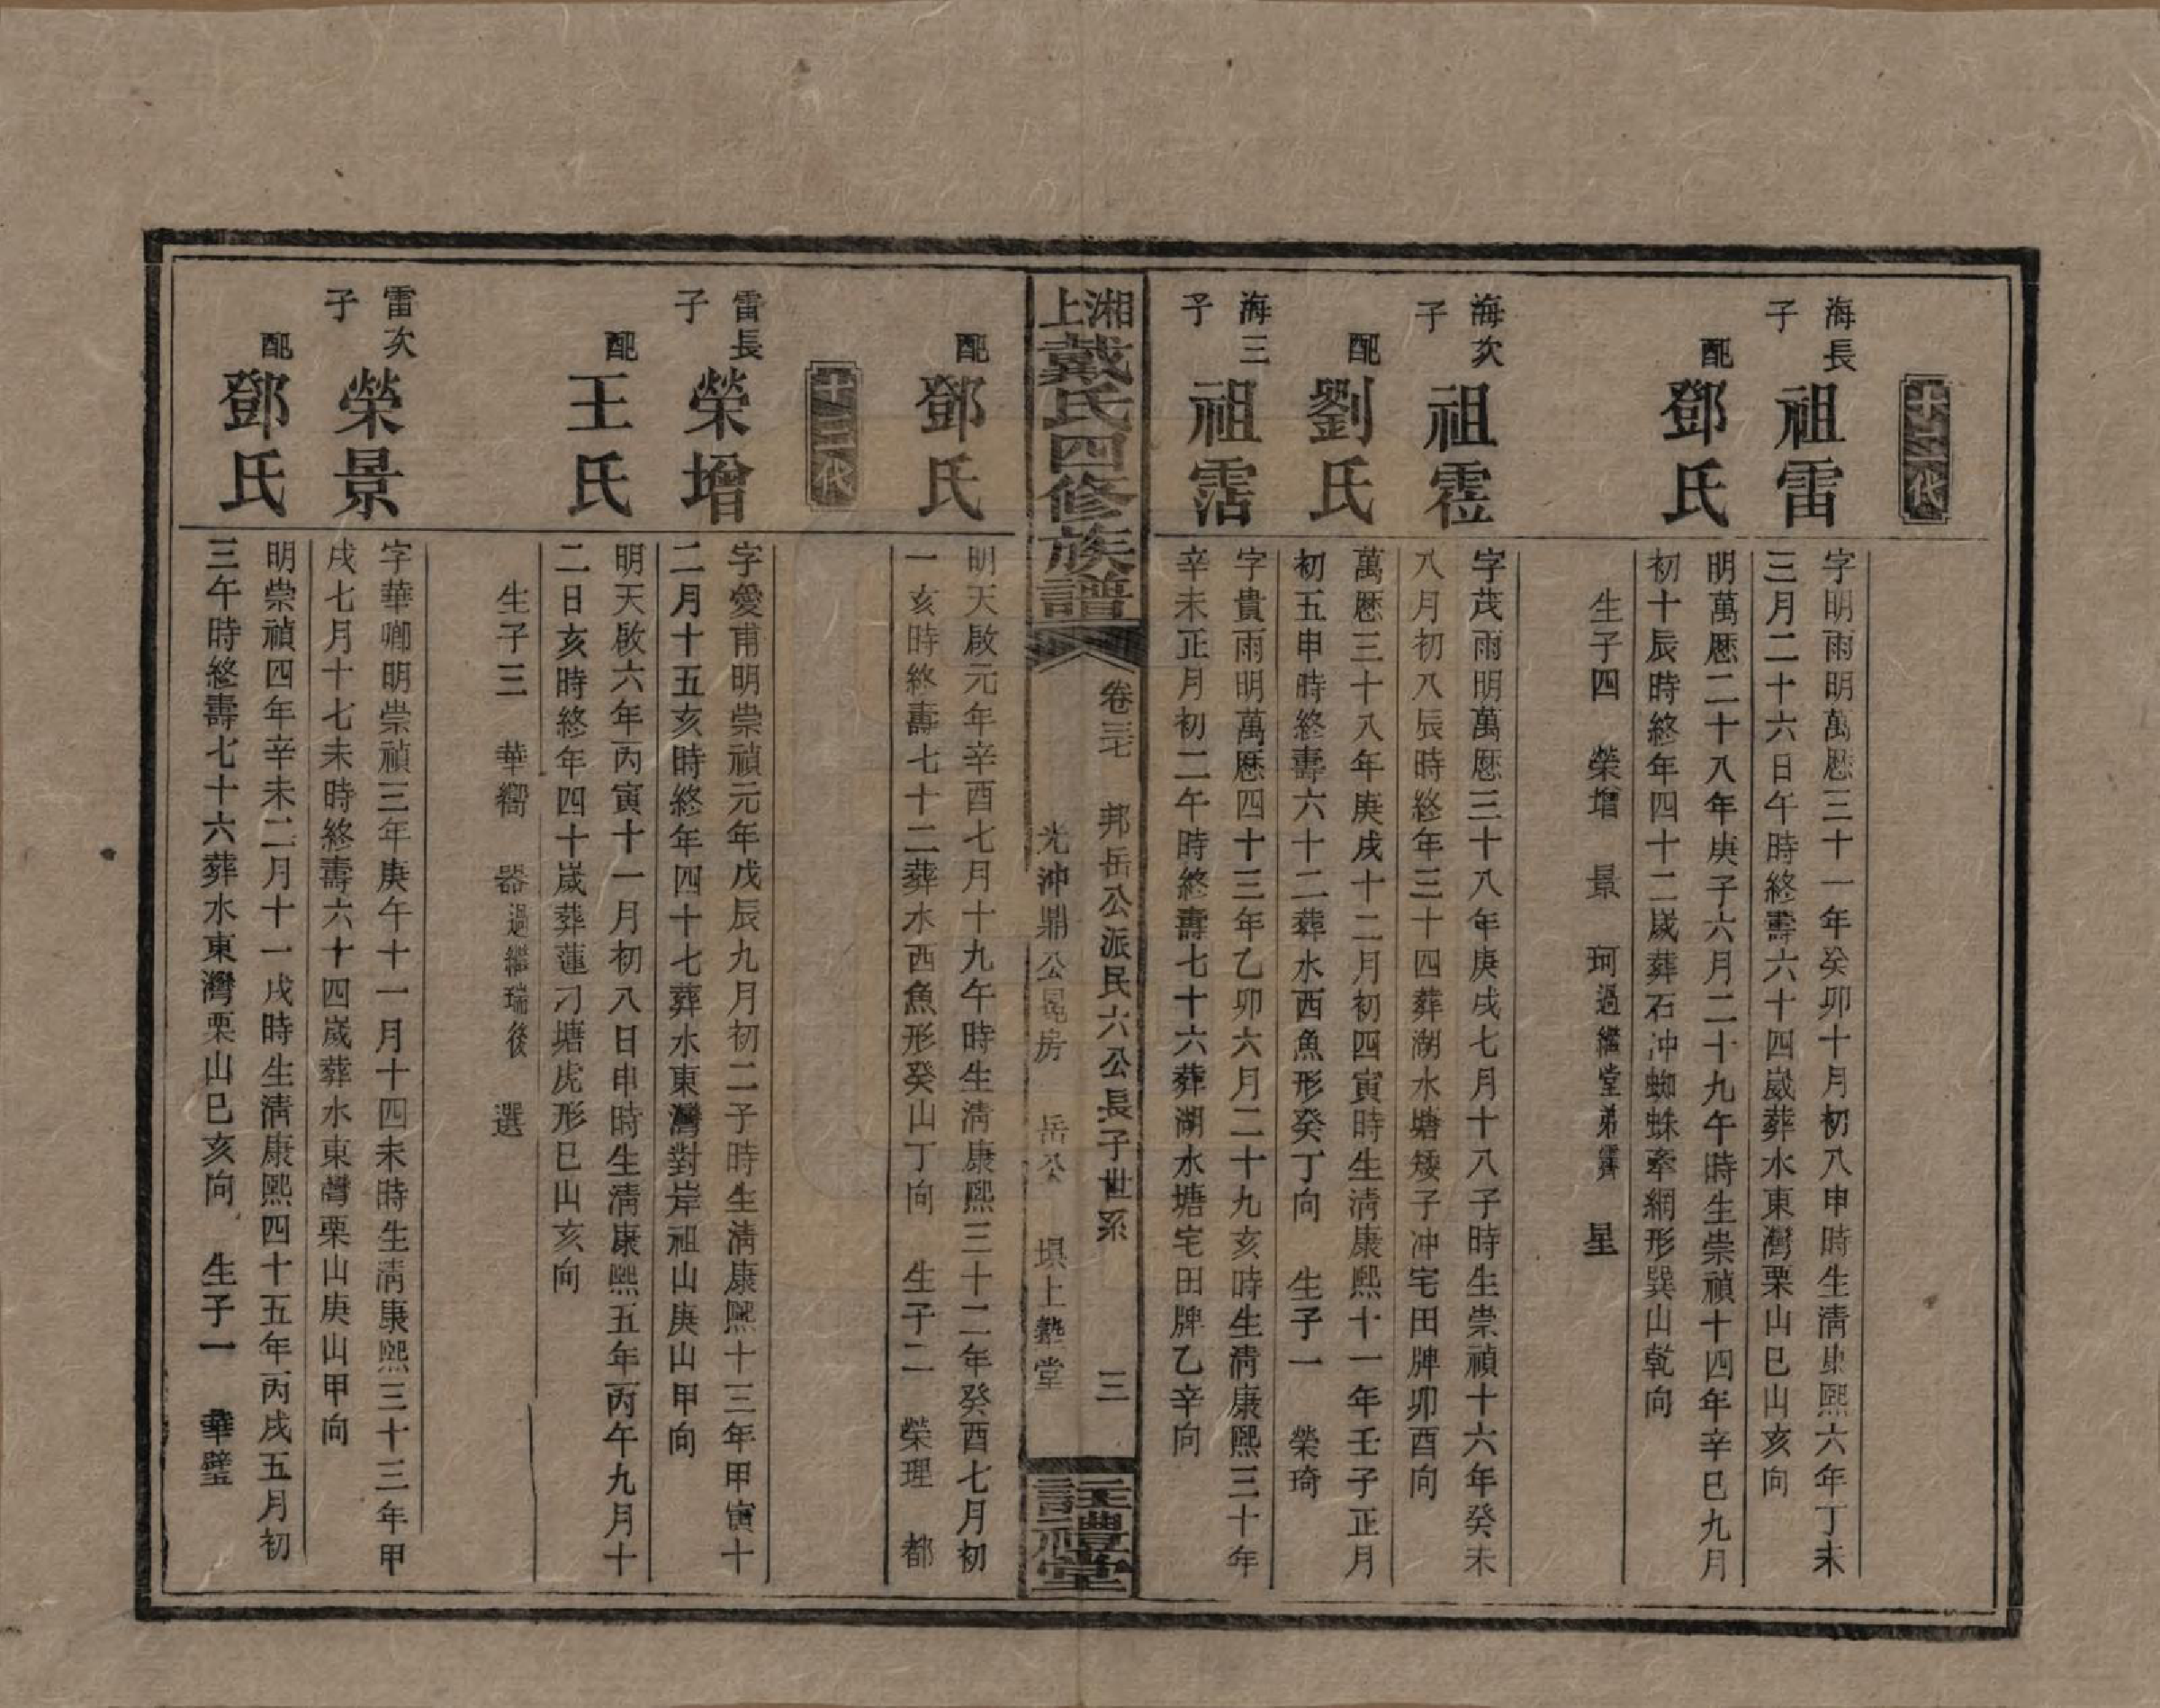 十二代
海長子
祖雷
字明雨明萬厯三十一年癸卯十月初八申時生清康熙六年丁未
三月二十六日午時終壽六十四歲葬水東灣栗山巳山亥向
配
鄧氏
明萬厯二十八年庚子六月二十九午時生崇禎十四年辛巳九月
初十辰時終年四十二歲葬石冲蜘蛛牽網形巽山乾向
生子四 榮增 景 珂過繼堂弟霽 星
海次子
祖霑
字茂雨明萬厯三十八年庚戌七月十八子時生崇禎十六年癸未
八月初八辰時終年三十四葬湖水塘矮子冲宅田牌卯酉向
配
劉氏
萬厯三十八年庚戌十二月初四寅時生清康熙十一年壬子正月
初五申時終壽六十二葬水西魚形癸丁向 生子一 榮琦
海三子
祖霑
字貴雨明萬厯四十三年乙卯六月二十九亥時生清康熙三十年
辛未正月初二午時終壽七十六葬湖水塘宅田牌乙辛向
湘上戴氏四修族譜
卷三七 邦岳公派民六公長子世系 三
光沖鼎公房 岳公 塅上塾堂
註禮堂
配
鄧氏
明天啟元年辛酉七月十九午時生清康熙三十二年癸酉七月初
一亥時終壽七十二葬水西魚形癸山丁向 生子二 榮理 都
十三代
雷長子
榮增
字愛甫明崇禎元年戊辰九月初二子時生清康熙十三年甲寅十
二月十五亥時終年四十七葬水東灣對岸祖山庚山甲向
配
王氏
明天啟六年丙寅十一月初八日申時生清康熙五年丙午九月十
二日亥時終年四十歲葬蓮刁塘虎形巳山亥向
生子三 華嚮 器過繼瑞後 選
雷次子
榮景
字華卿明崇禎三年庚午十一月十四未時生清康熙三十三年甲
戌七月十七未時終壽六十四歲葬水東灣栗山庚山甲向
配
鄧氏
明崇禎四年辛未二月十一戌時生清康熙四十五年丙戌五月初
三午時終壽七十六葬水東灣栗山巳亥向 生子一 華璧